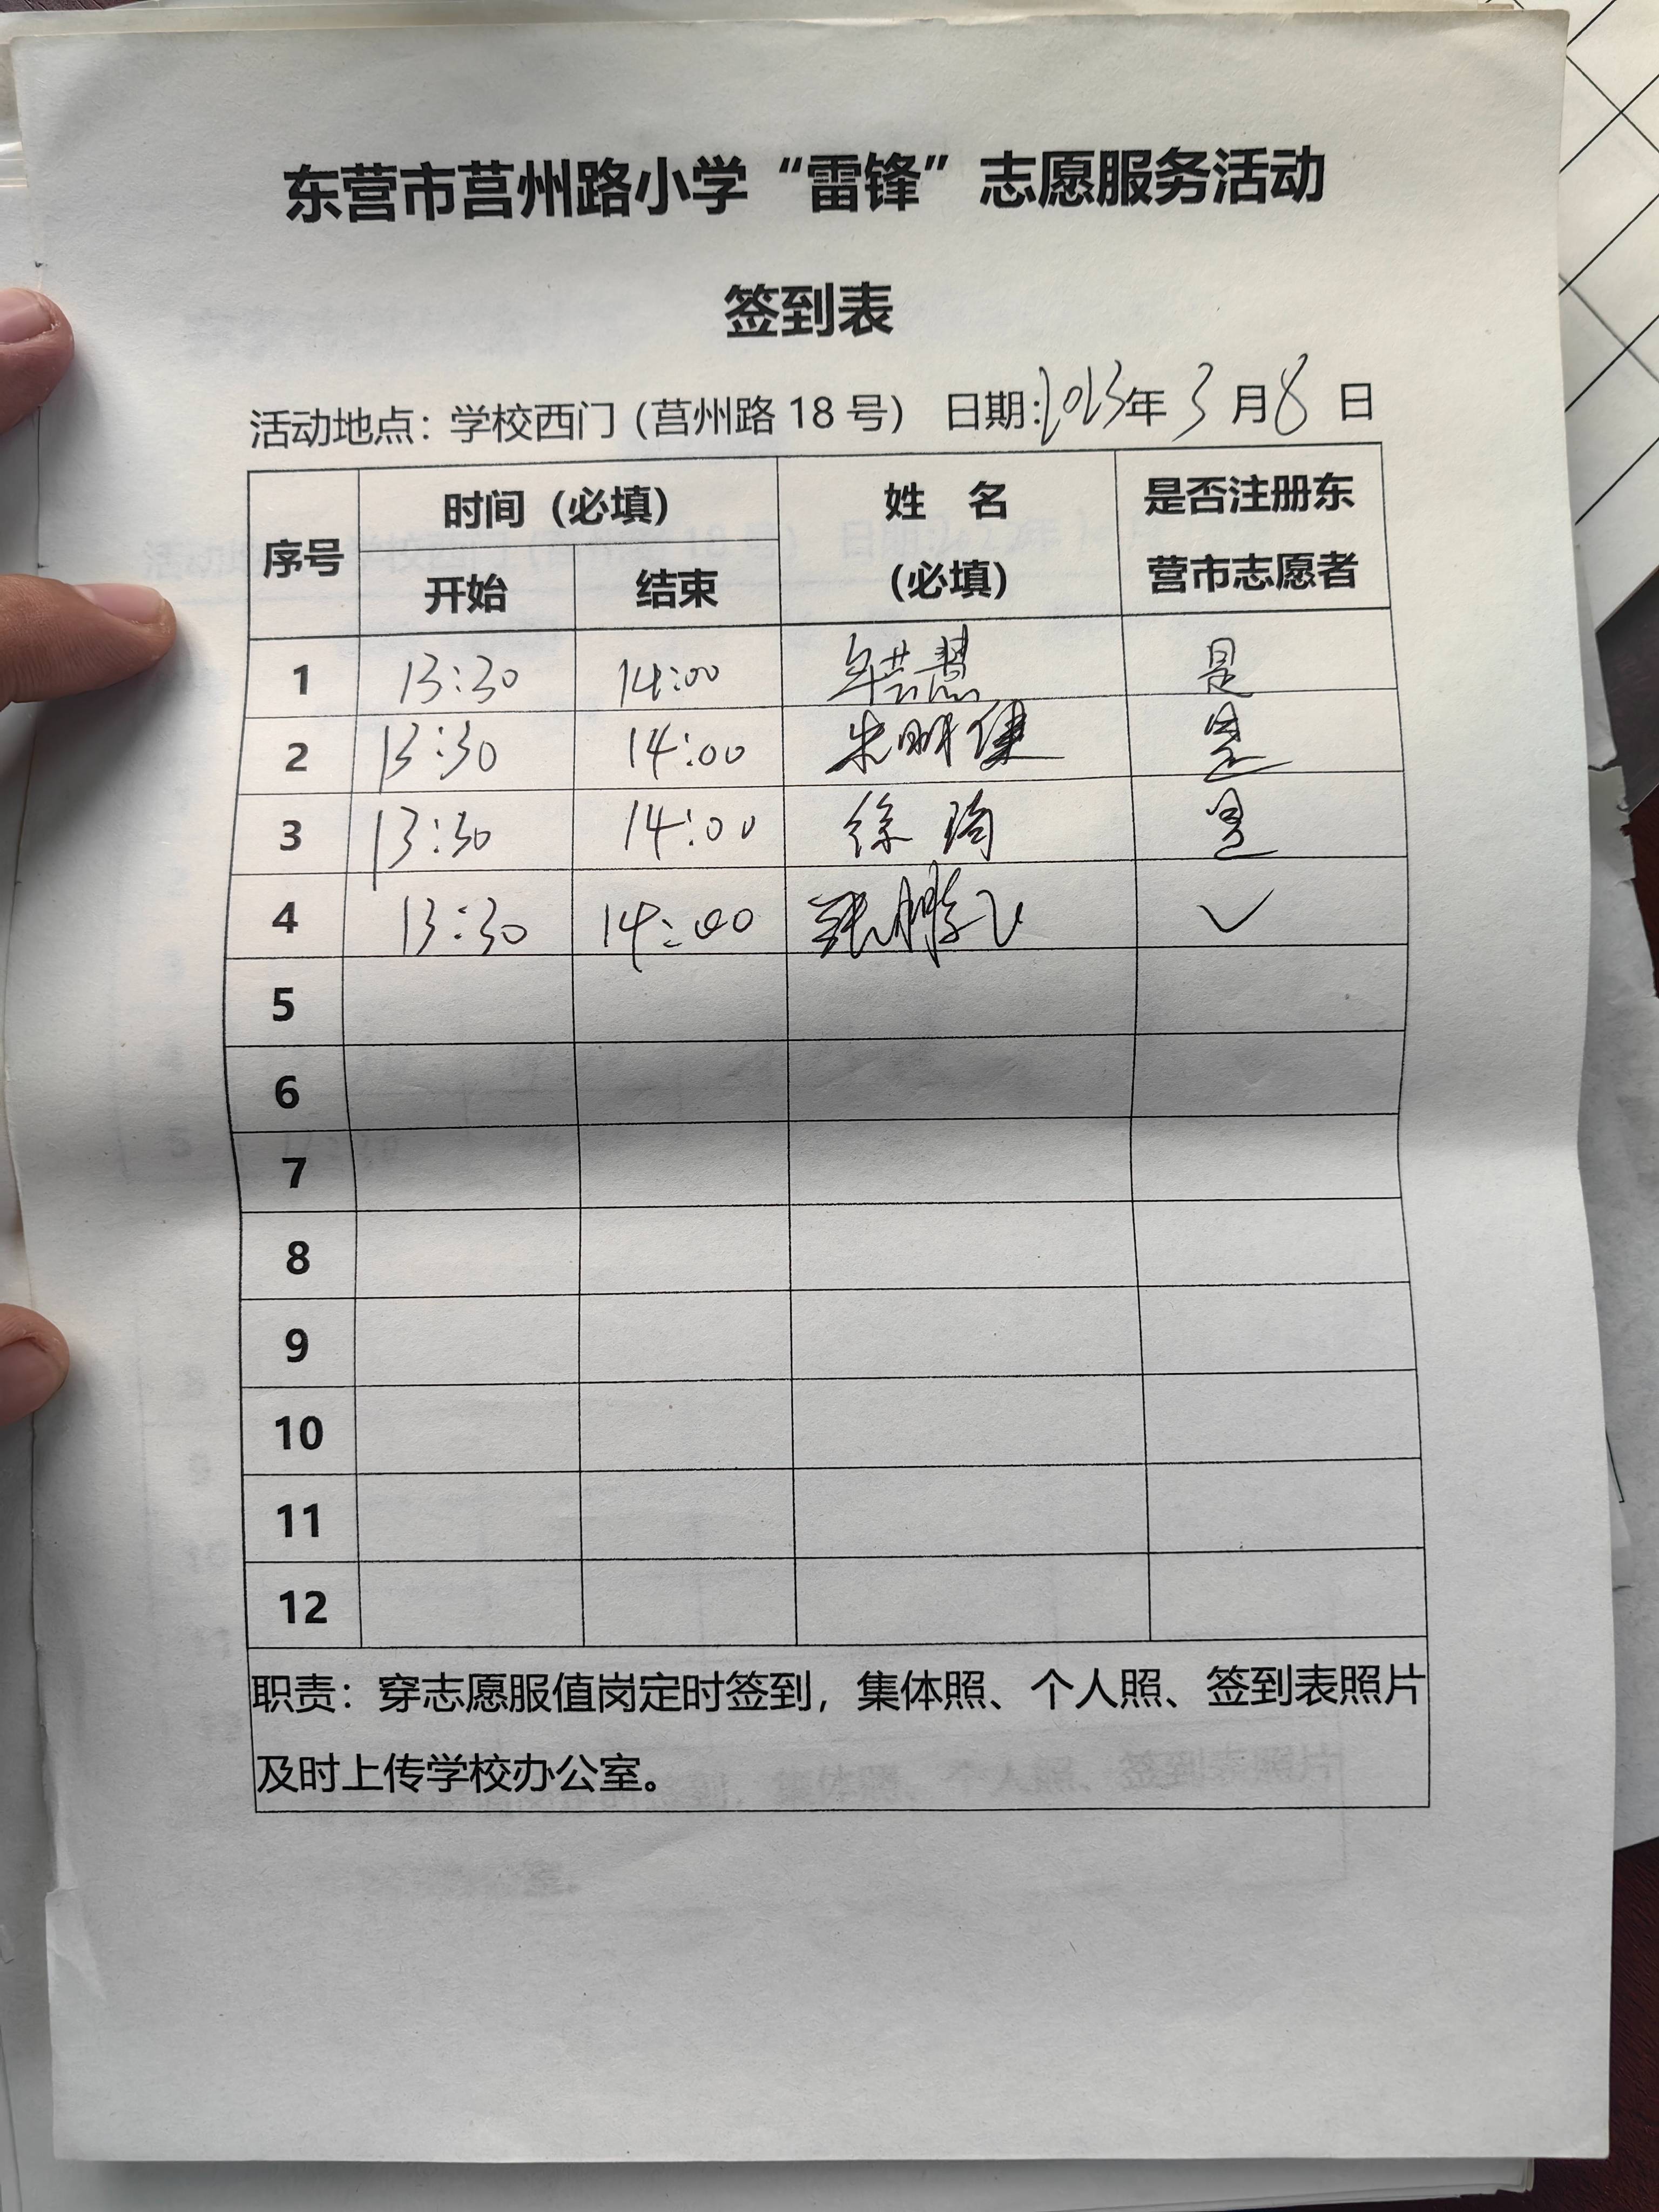 东营市莒州路小学“雷锋”志愿服务活动
签到表
活动地点：学校西门（莒州路 18 号） 日期：2023年 3 月 8 日
序号 时间（必填） 姓 名（必填） 是否注册东营市志愿者
开始 结束
1 13:30 14:00 牟芸慧 是
2 13:30 14:00 朱明健 是
3 13:30 14:00 徐 是
4 13:30 14:00 张鹏飞 ✓
5
6
7
8
9
10
11
12
职责：穿志愿服值岗定时签到，集体照、个人照、签到表照片
及时上传学校办公室。